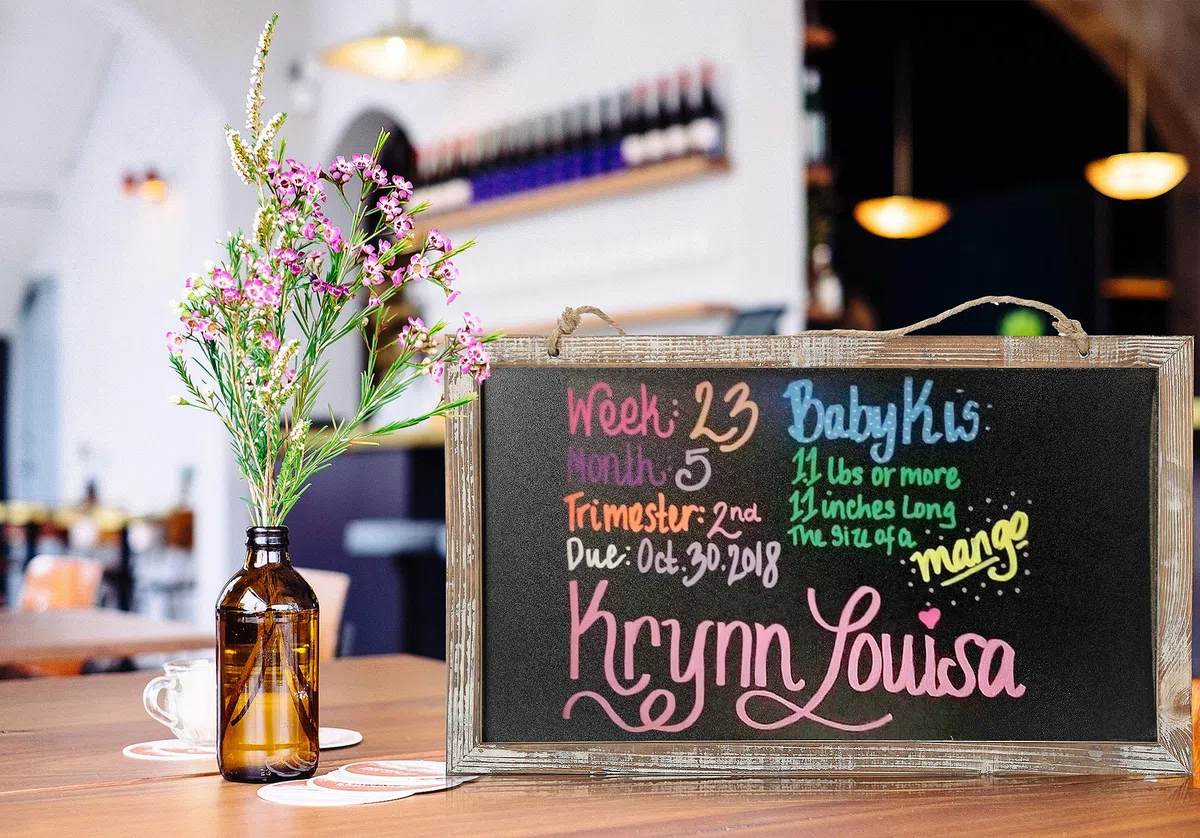 Week: 23
Month: 5
Trimester: 2nd
Due: Oct.30.2018
Baby K is
11 lbs or more
11 inches Long
The size of a
mango
Krynn Louisa